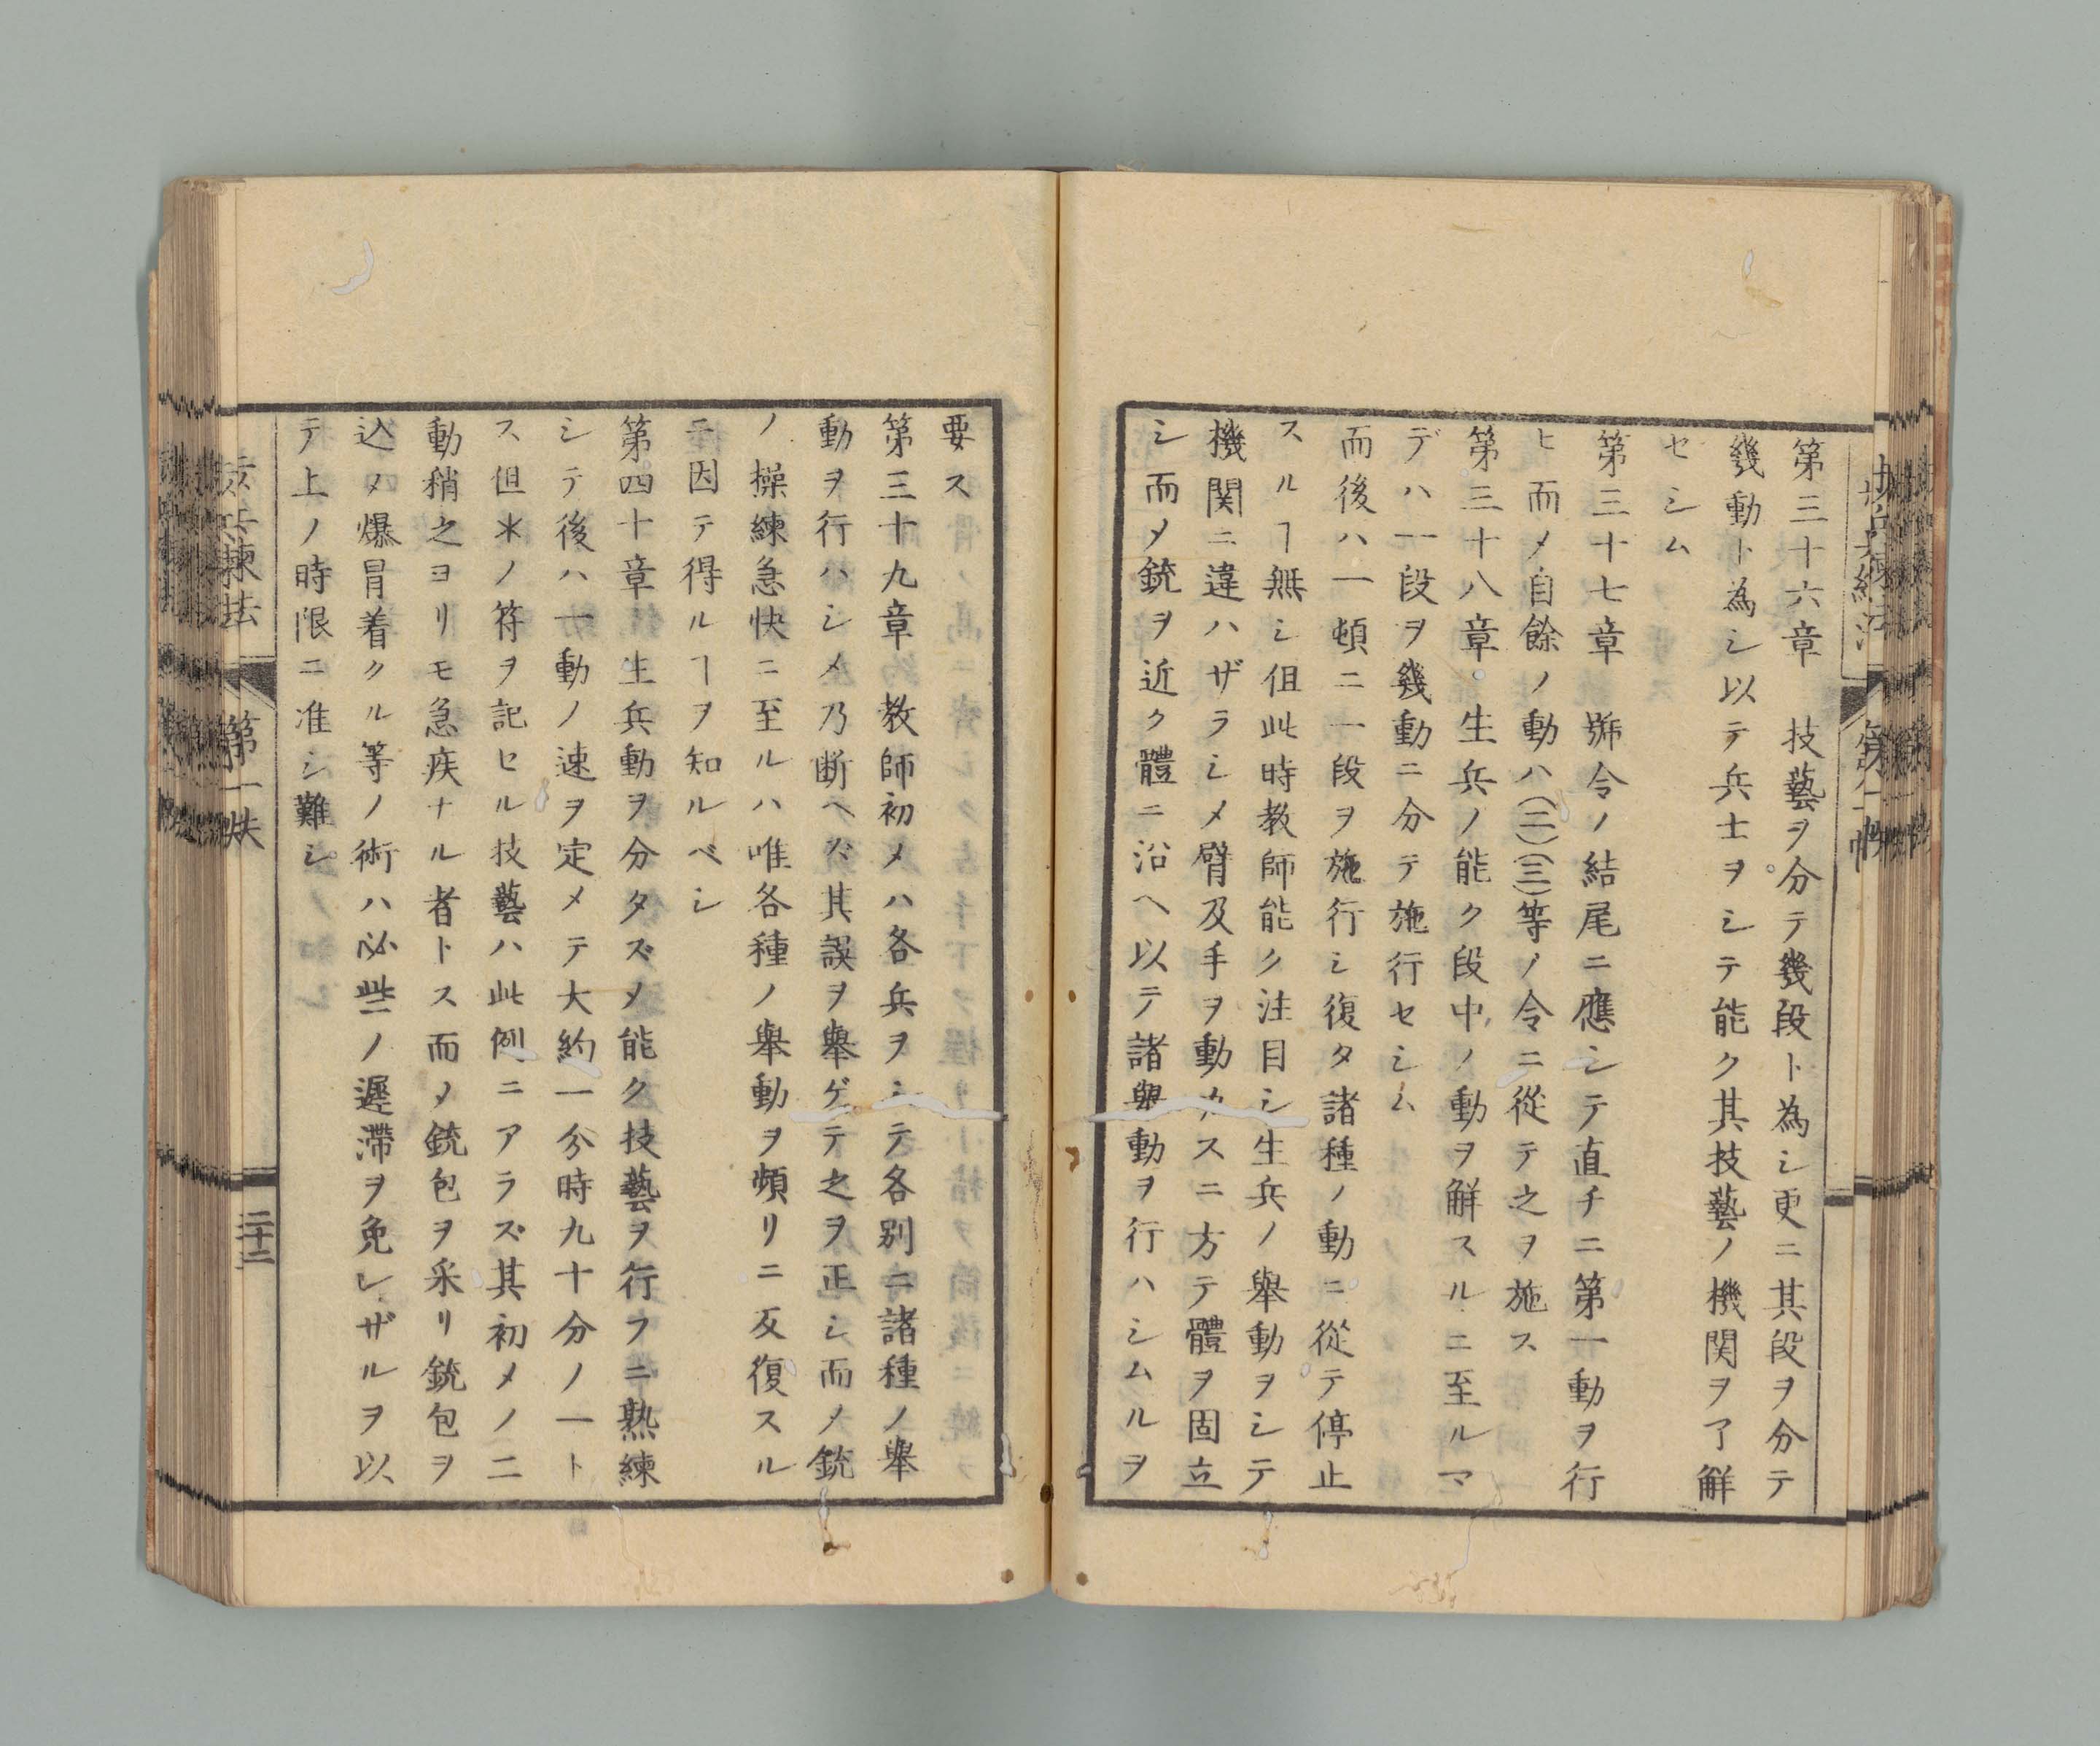 第三十六章　技藝ヲ分テ幾段ト為シ更ニ其段ヲ分テ
幾動ト為シ以テ兵士ヲシテ能ク其技藝ノ機関ヲ了解
セシム
第三十七章　號令ノ結尾ニ應シテ直チニ第一動ヲ行
ヒ而メ自餘ノ動ハ(二)(三)等ノ令ニ從テ之ヲ施ス
第三十八章　生兵ノ能ク段中ノ動ヲ解スルニ至ルマ
デハ一段ヲ幾動ニ分テ施行セシム
而後ハ一頓ニ一段ヲ施行シ復タ諸種ノ動ニ從テ停止
スルヿ無シ但此時教師能ク注目シ生兵ノ舉動ヲシテ
機関ニ違ハザラシメ臂及手ヲ動カスニ方テ體ヲ固立
シ而メ銃ヲ近ク體ニ沿ヘ以テ諸舉動ヲ行ハシムルヲ
要ス
第三十九章　教師初メハ各兵ヲシテ各別ニ諸種ノ舉
動ヲ行ハシメ乃断ヘズ其誤ヲ舉ゲテ之ヲ正シ而メ銃
ノ操練急快ニ至ルハ唯各種ノ舉動ヲ頻リニ反復スル
ニ因テ得ルヿヲ知ルベシ
第四十章　生兵動ヲ分タズメ能ク技藝ヲ行フニ熟練
シテ後ハ一動ノ速ヲ定メテ大約一分時九十分ノ一ト
ス但＊ノ符ヲ記セル技藝ハ此例ニアラズ其初メノ二
動稍之ヨリモ急疾ナル者トス而メ銃包ヲ采リ銃包ヲ
込メ爆冐着クル等ノ術ハ必些ノ遲滯ヲ免レザルヲ以
テ上ノ時限ニ准シ難シ
第一帙
二十二